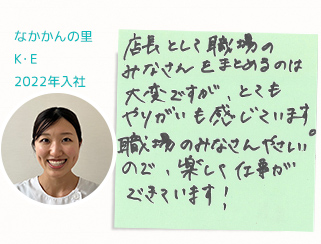 なかかんの里
K･E
2022年入社
店長として職場の
みなさんをまとめるのは
大変ですが、とても
やりがいも感じています。
職場のみなさんやさしい
ので、楽しく仕事が
できています!